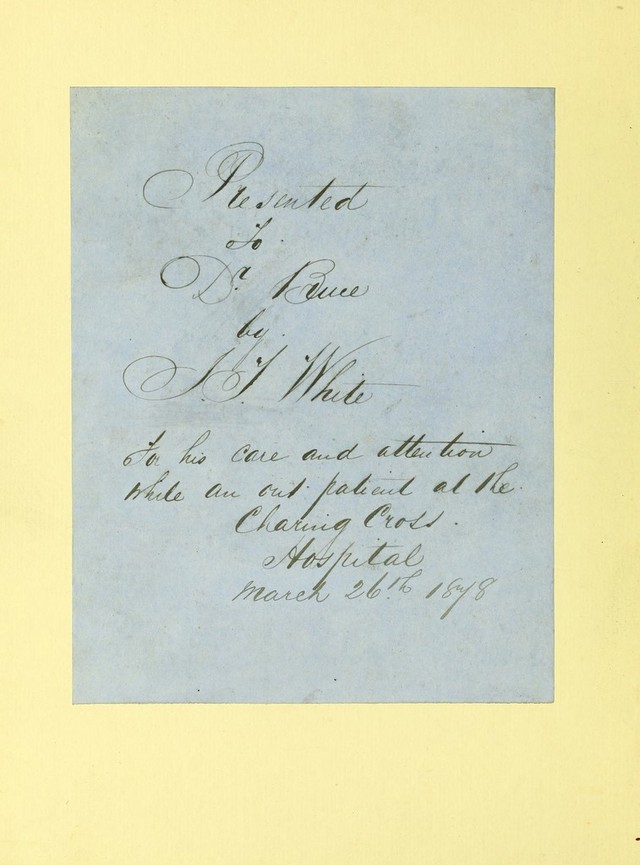 Presented
to
Dr. Bruce
by
J. T. White
For his care and attention
while an out patient at the
Charing Cross.
Hospital
March 26th 1878